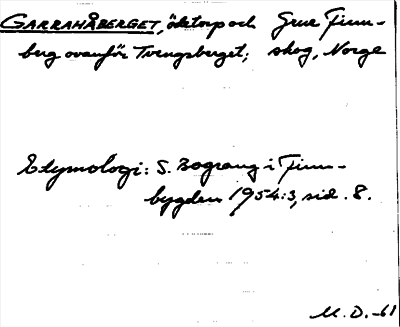 GARRAHÅBERGET, ödetorp och Grue Finn-
berg ovanför Tvengsberget; skog, Norge
Etymologi: S. Bograng i Finn-
bygden 1954:3, sid. 8.
M. D. -61